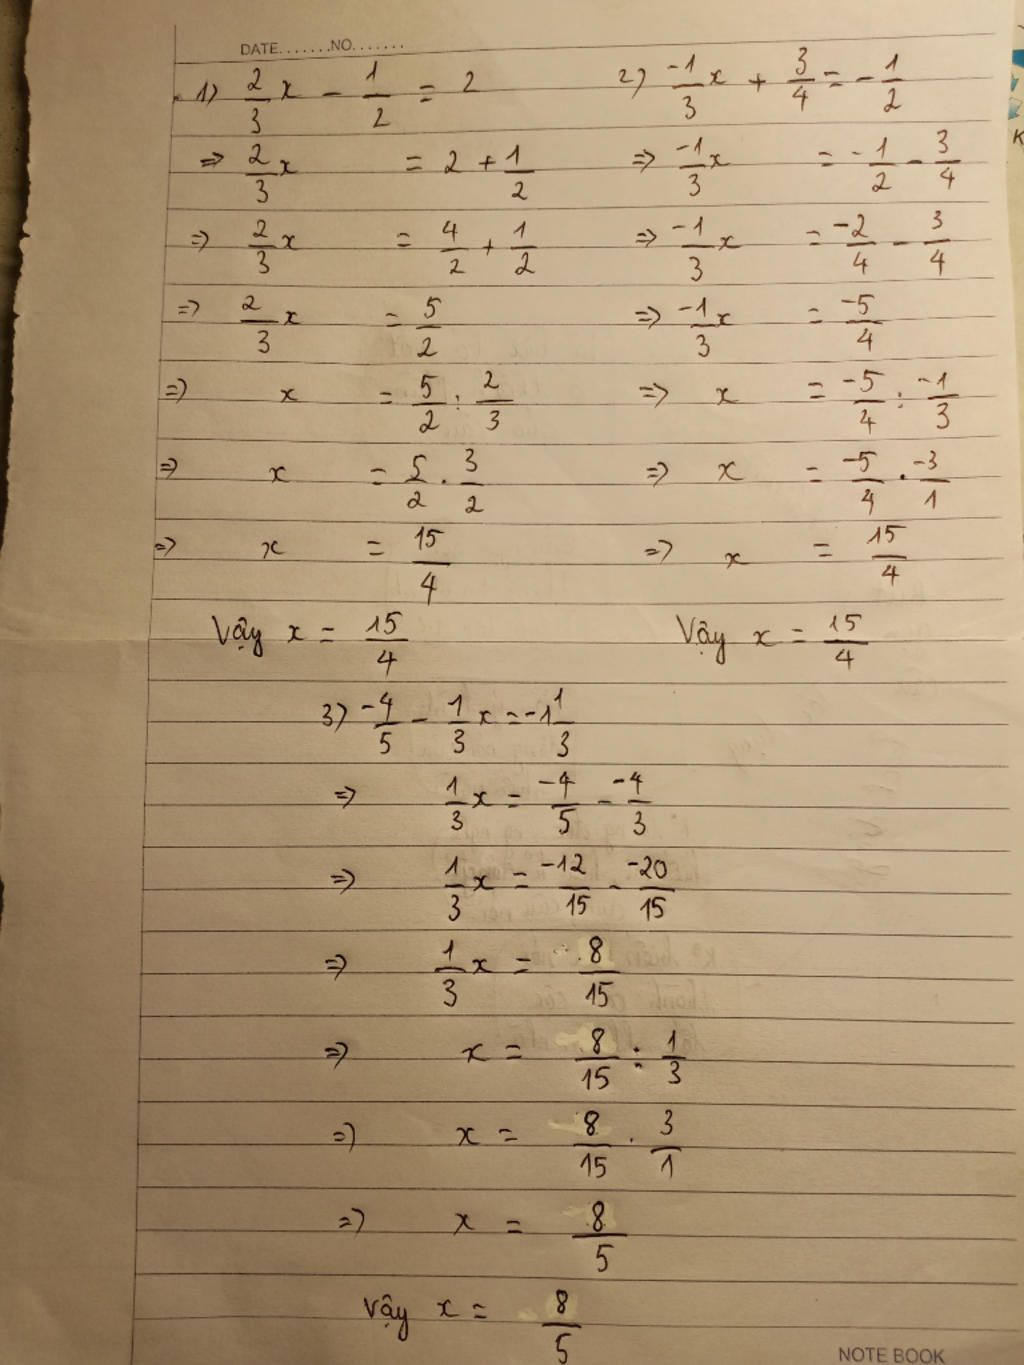 DATE.......NO.......
1) 2/3 x - 1/2 = 2
=> 2/3 x = 2 + 1/2
=> 2/3 x = 4/2 + 1/2
=> 2/3 x = 5/2
=> x = 5/2 : 2/3
=> x = 5/2 . 3/2
=> x = 15/4
Vậy x = 15/4
2) -1/3 x + 3/4 = -1/2
=> -1/3 x = -1/2 - 3/4
=> -1/3 x = -2/4 - 3/4
=> -1/3 x = -5/4
=> x = -5/4 : -1/3
=> x = -5/4 . -3/1
=> x = 15/4
Vậy x = 15/4
3) -4/5 - 1/3 x = -1 1/3
=> 1/3 x = -4/5 - -4/3
=> 1/3 x = -12/15 - -20/15
=> 1/3 x = 8/15
=> x = 8/15 : 1/3
=> x = 8/15 . 3/1
=> x = 8/5
Vậy x = 8/5
NOTE BOOK